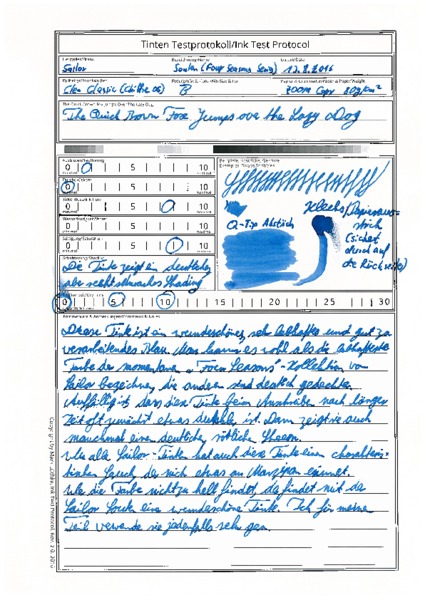 Tinten Testprotokoll/Ink Test Protocol
Sailor Souten (Four Seasons Serie) 13.2.2016
B Zoom Copy 80g/m²
The Quick Brown Fox Jumps over the Lazy Dog
0 5 10
0 5 10
0 5 10
0 5 10
0 5 10
Q-Tip Abstrich
Klecks/
strich
(sickert
durch auf
die Rückseite)
Die Tinte zeigt ein deutliches
aber recht schwaches Shading
0 5 10 15 20 25 30
Diese Tinte ist ein wunderschönes, sehr lebhaftes und gut zu
verarbeitendes Blau. Man kann es wohl als die lebhafteste
Farbe der momentanen „Four Seasons"-Kollektion von
Sailor bezeichnen, die anderen sind deutlich gedeckter.
Auffällig ist dass die Tinte beim Ausstreichen nach längerer
Zeit oft zunächst etwas dunkler ist. Dann zeigt sie auch
manchmal einen deutlichen, rötlichen Sheen.
Wie alle Sailor-Tinten hat auch diese Tinte einen charakteris-
tischen Geruch, der mich etwas an Marzipan erinnert.
Wem die Farbe nicht zu hell findet, der findet mit der
Sailor Souten eine wunderschöne Tinte. Ich für meinen
Teil verwende sie jedenfalls sehr gern.